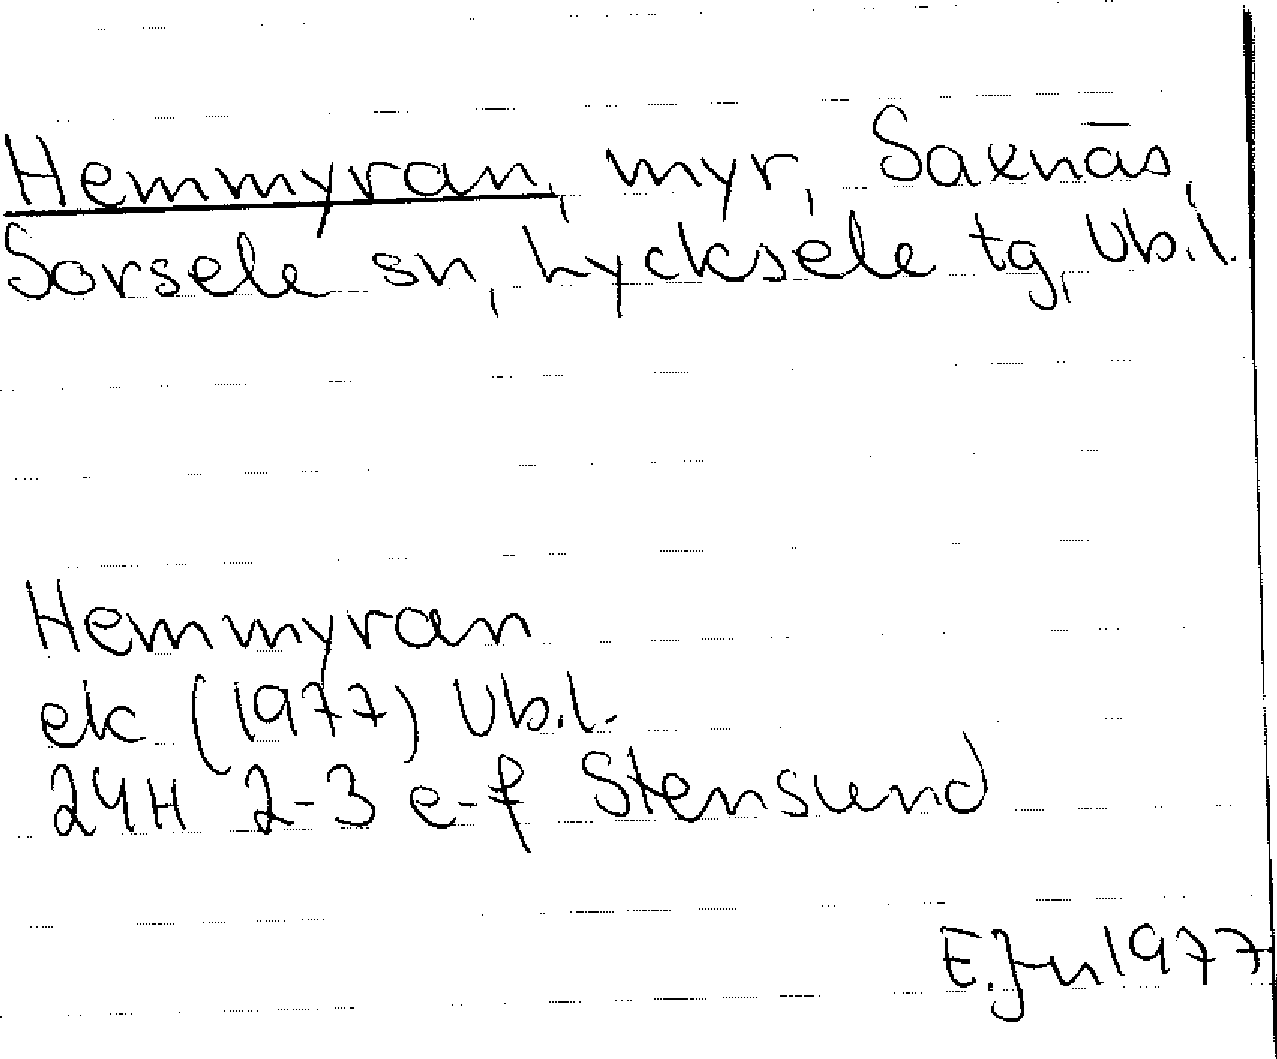 Hemmyran, myr, Saxnäs,
Sorsele sn, Lycksele tg, Vb.l.
Hemmyran
ek (1977) Vb.l.
24H 2-3 e-f Stensund
E.Jn 1977